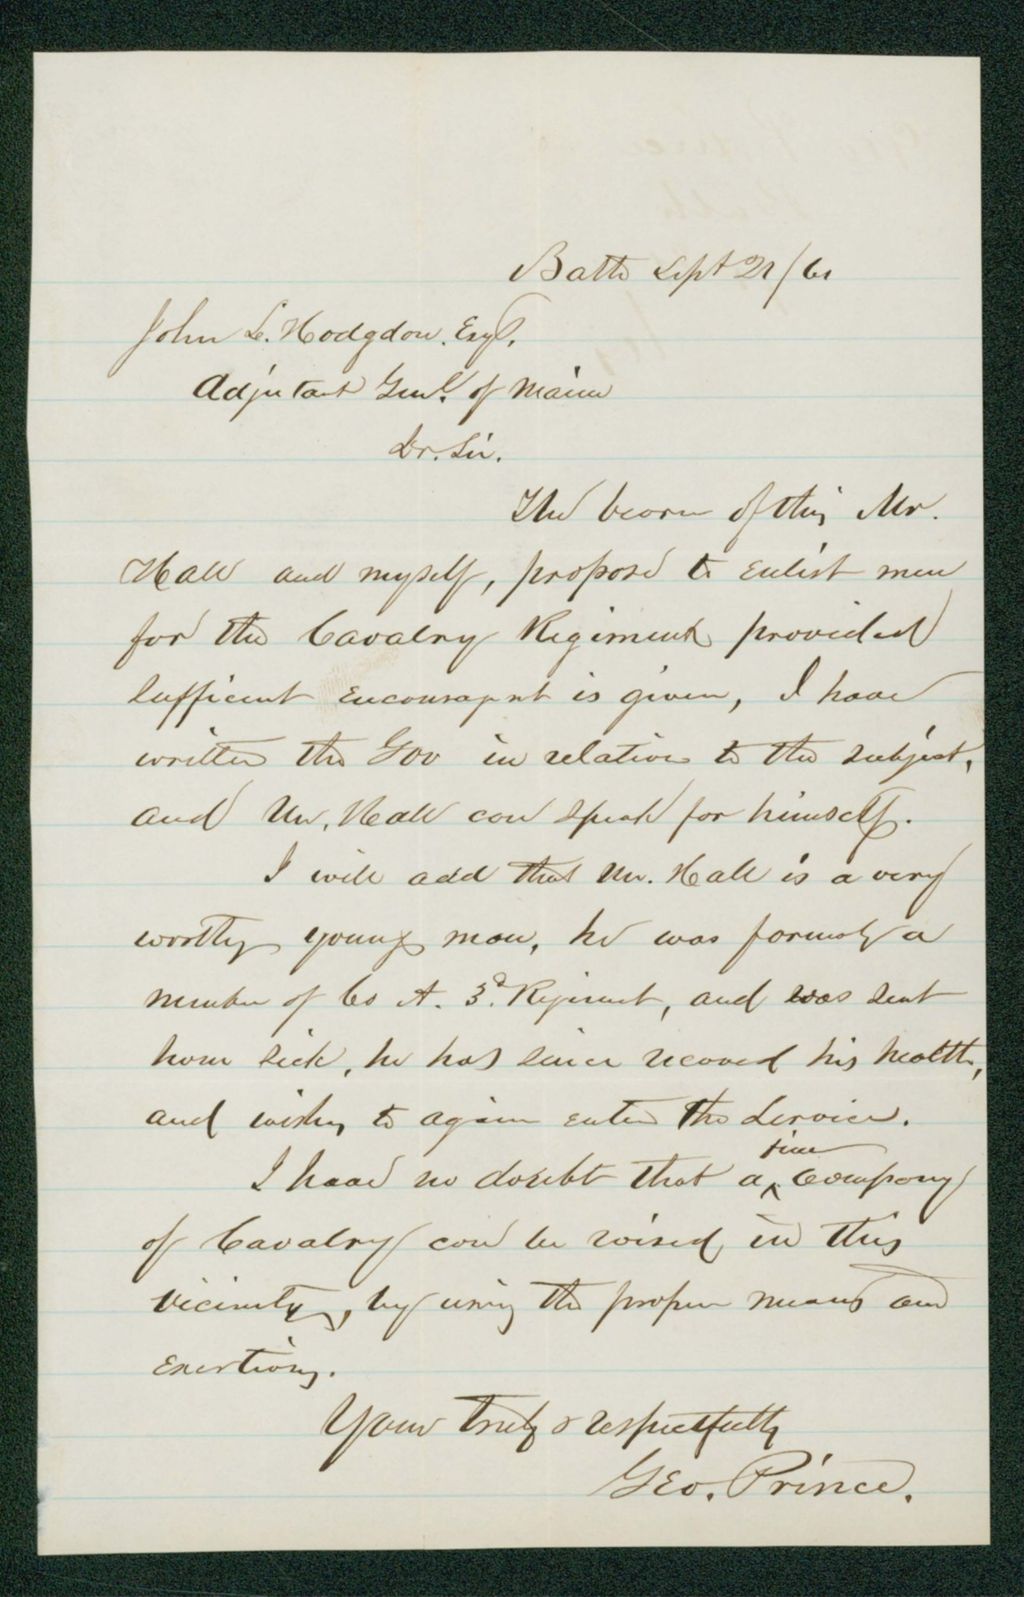 Bath Sept 21/61
John L. Hodgdon. Esqr.
Adjutant Genl. of Maine
Dr. Sir.
The bearer of this Mr.
Hall and myself, propose to enlist men
for the Cavalry Regiment provided
sufficient encouragmt is given, I have
written the Gov in relation to the subject,
and Mr. Hall can speak for himself.
I will add that Mr. Hall is a very
worthy young man, he was formerly a
member of Co A. 3d. Regiment, and was sent
home sick, he has since recoved his health,
and wishes to again enter the Service.
I have no doubt that a fine Company
of Cavalry can be raised in this
vicinity, by using the proper means and
exertions.
Yours truly & respectfully
Geo. Prince.